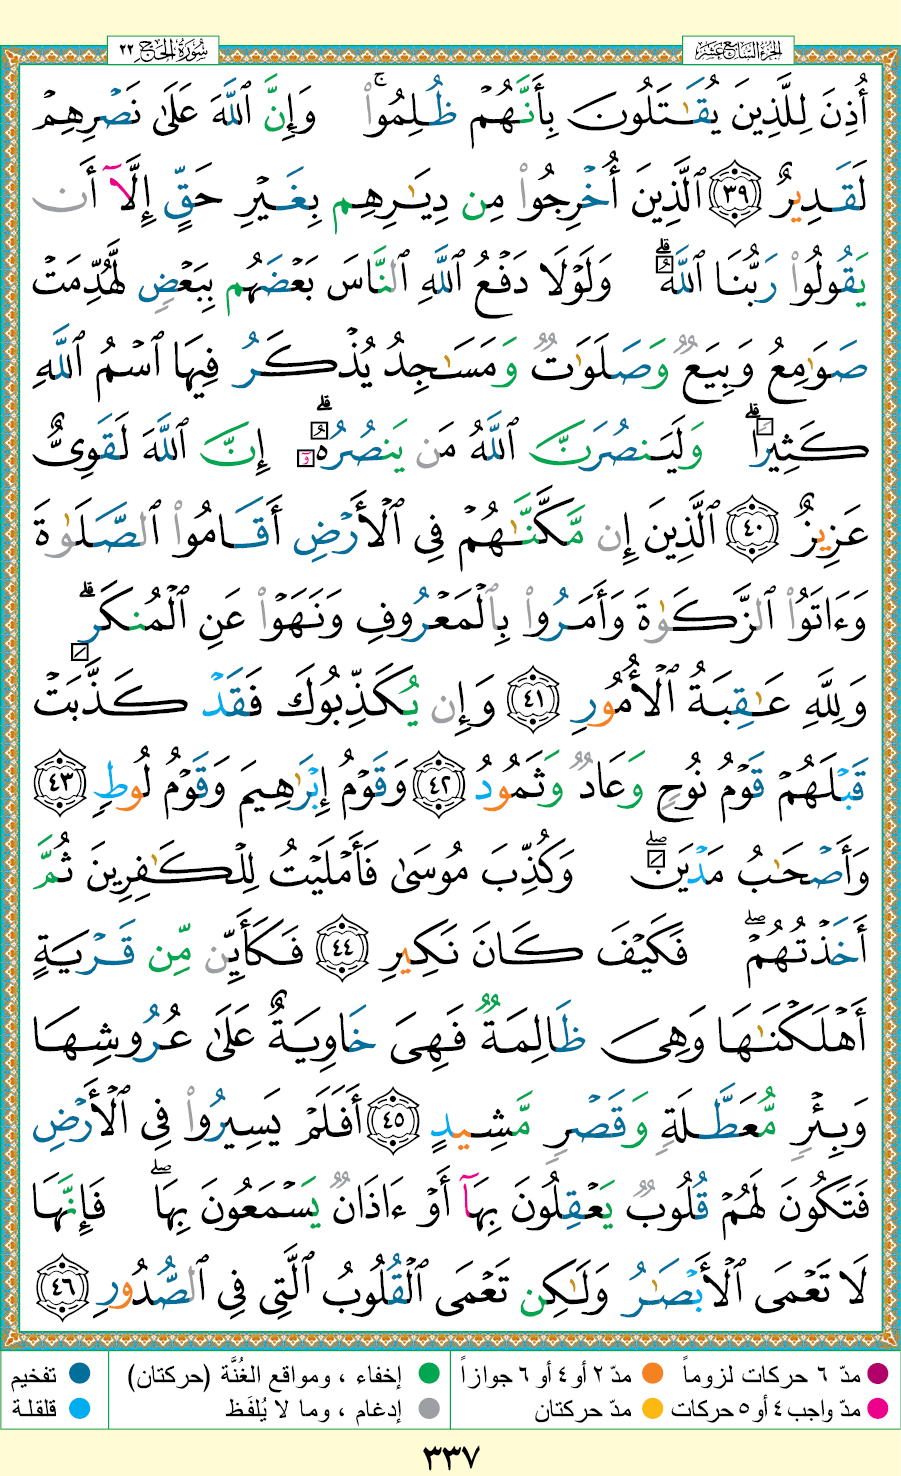 الجزء السابع عشر
سورة الحج ٢٢
أُذِنَ لِلَّذِينَ يُقَٰتَلُونَ بِأَنَّهُمْ ظُلِمُوا۟ ۚ وَإِنَّ ٱللَّهَ عَلَىٰ نَصْرِهِمْ
لَقَدِيرٌ ٣٩ ٱلَّذِينَ أُخْرِجُوا۟ مِن دِيَٰرِهِم بِغَيْرِ حَقٍّ إِلَّآ أَن
يَقُولُوا۟ رَبُّنَا ٱللَّهُ ۗ وَلَوْلَا دَفْعُ ٱللَّهِ ٱلنَّاسَ بَعْضَهُم بِبَعْضٍ لَّهُدِّمَتْ
صَوَٰمِعُ وَبِيَعٌ وَصَلَوَٰتٌ وَمَسَٰجِدُ يُذْكَرُ فِيهَا ٱسْمُ ٱللَّهِ
كَثِيرًا ۗ وَلَيَنصُرَنَّ ٱللَّهُ مَن يَنصُرُهُۥٓ ۗ إِنَّ ٱللَّهَ لَقَوِىٌّ
عَزِيزٌ ٤٠ ٱلَّذِينَ إِن مَّكَّنَّٰهُمْ فِى ٱلْأَرْضِ أَقَامُوا۟ ٱلصَّلَوٰةَ
وَءَاتَوُا۟ ٱلزَّكَوٰةَ وَأَمَرُوا۟ بِٱلْمَعْرُوفِ وَنَهَوْا۟ عَنِ ٱلْمُنكَرِ ۗ
وَلِلَّهِ عَٰقِبَةُ ٱلْأُمُورِ ٤١ وَإِن يُكَذِّبُوكَ فَقَدْ كَذَّبَتْ
قَبْلَهُمْ قَوْمُ نُوحٍ وَعَادٌ وَثَمُودُ ٤٢ وَقَوْمُ إِبْرَٰهِيمَ وَقَوْمُ لُوطٍ ٤٣
وَأَصْحَٰبُ مَدْيَنَ ۖ وَكُذِّبَ مُوسَىٰ فَأَمْلَيْتُ لِلْكَٰفِرِينَ ثُمَّ
أَخَذْتُهُمْ ۖ فَكَيْفَ كَانَ نَكِيرِ ٤٤ فَكَأَيِّن مِّن قَرْيَةٍ
أَهْلَكْنَٰهَا وَهِىَ ظَالِمَةٌ فَهِىَ خَاوِيَةٌ عَلَىٰ عُرُوشِهَا
وَبِئْرٍ مُّعَطَّلَةٍ وَقَصْرٍ مَّشِيدٍ ٤٥ أَفَلَمْ يَسِيرُوا۟ فِى ٱلْأَرْضِ
فَتَكُونَ لَهُمْ قُلُوبٌ يَعْقِلُونَ بِهَآ أَوْ ءَاذَانٌ يَسْمَعُونَ بِهَا ۖ فَإِنَّهَا
لَا تَعْمَى ٱلْأَبْصَٰرُ وَلَٰكِن تَعْمَى ٱلْقُلُوبُ ٱلَّتِى فِى ٱلصُّدُورِ ٤٦
مدّ ٦ حركات لزوماً مدّ ٢ أو ٤ أو ٦ جوازاً إخفاء ، ومواقع الغُنَّة (حركتان) تفخيم
مدّ واجب ٤ أو ٥ حركات مدّ حركتان إدغام ، وما لا يُلفَظ قلقلة
٣٣٧